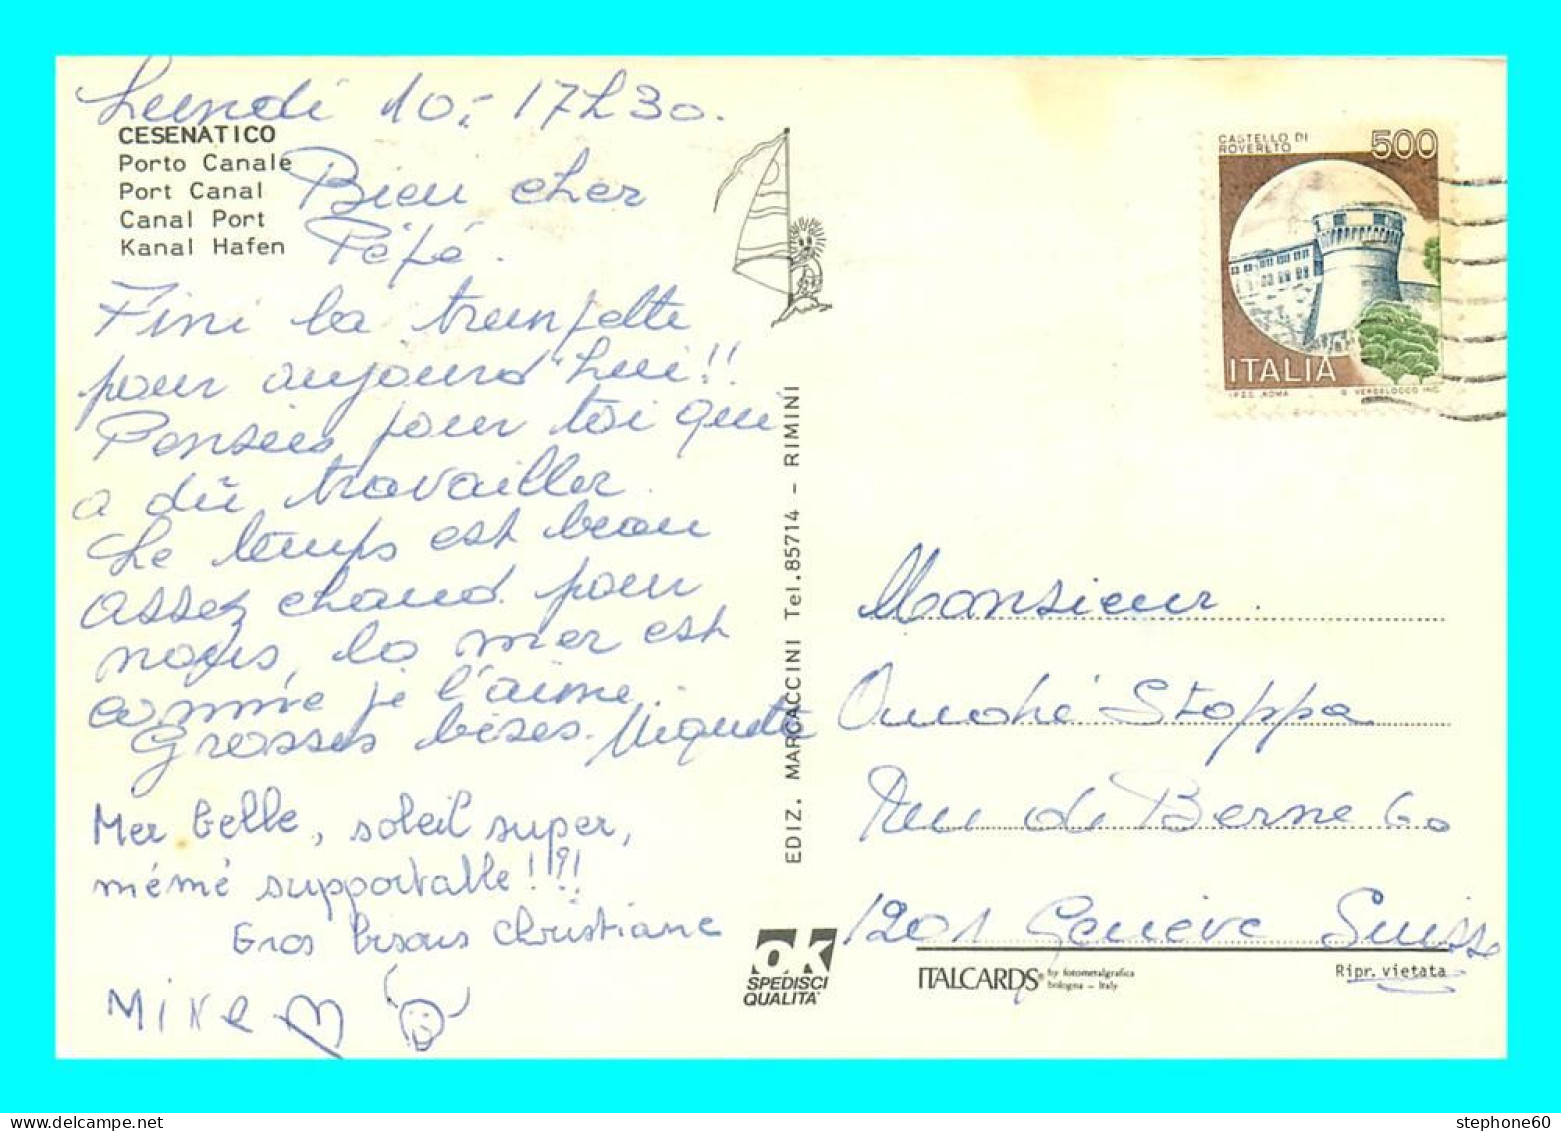 Lundi 10, 17h30.
CESENATICO
Porto Canale
Port Canal
Canal Port
Kanal Hafen
Bien cher
Pépé.
Fini la trempette
pour aujourd'hui!!
Pensées pour toi qui
a dû travailler.
Le temps est beau
assez chaud pour
nous, la mer est
comme je l'aime.
Grosses bises. Miquette
Mer belle, soleil super,
mémé supportable!!?!!
Gros bisous Christiane
MIKE
EDIZ. MARCACCINI Tel.85714 - RIMINI
CASTELLO DI
ROVERETO
500
ITALIA
I.P.Z.S. ROMA
Monsieur
André Stoppa
Rue de Berne 60
1201 Genève Suisse
OK
SPEDISCI
QUALITA'
ITALCARDS® by fotometalgrafica
bologna - Italy
Ripr. vietata
stephone60